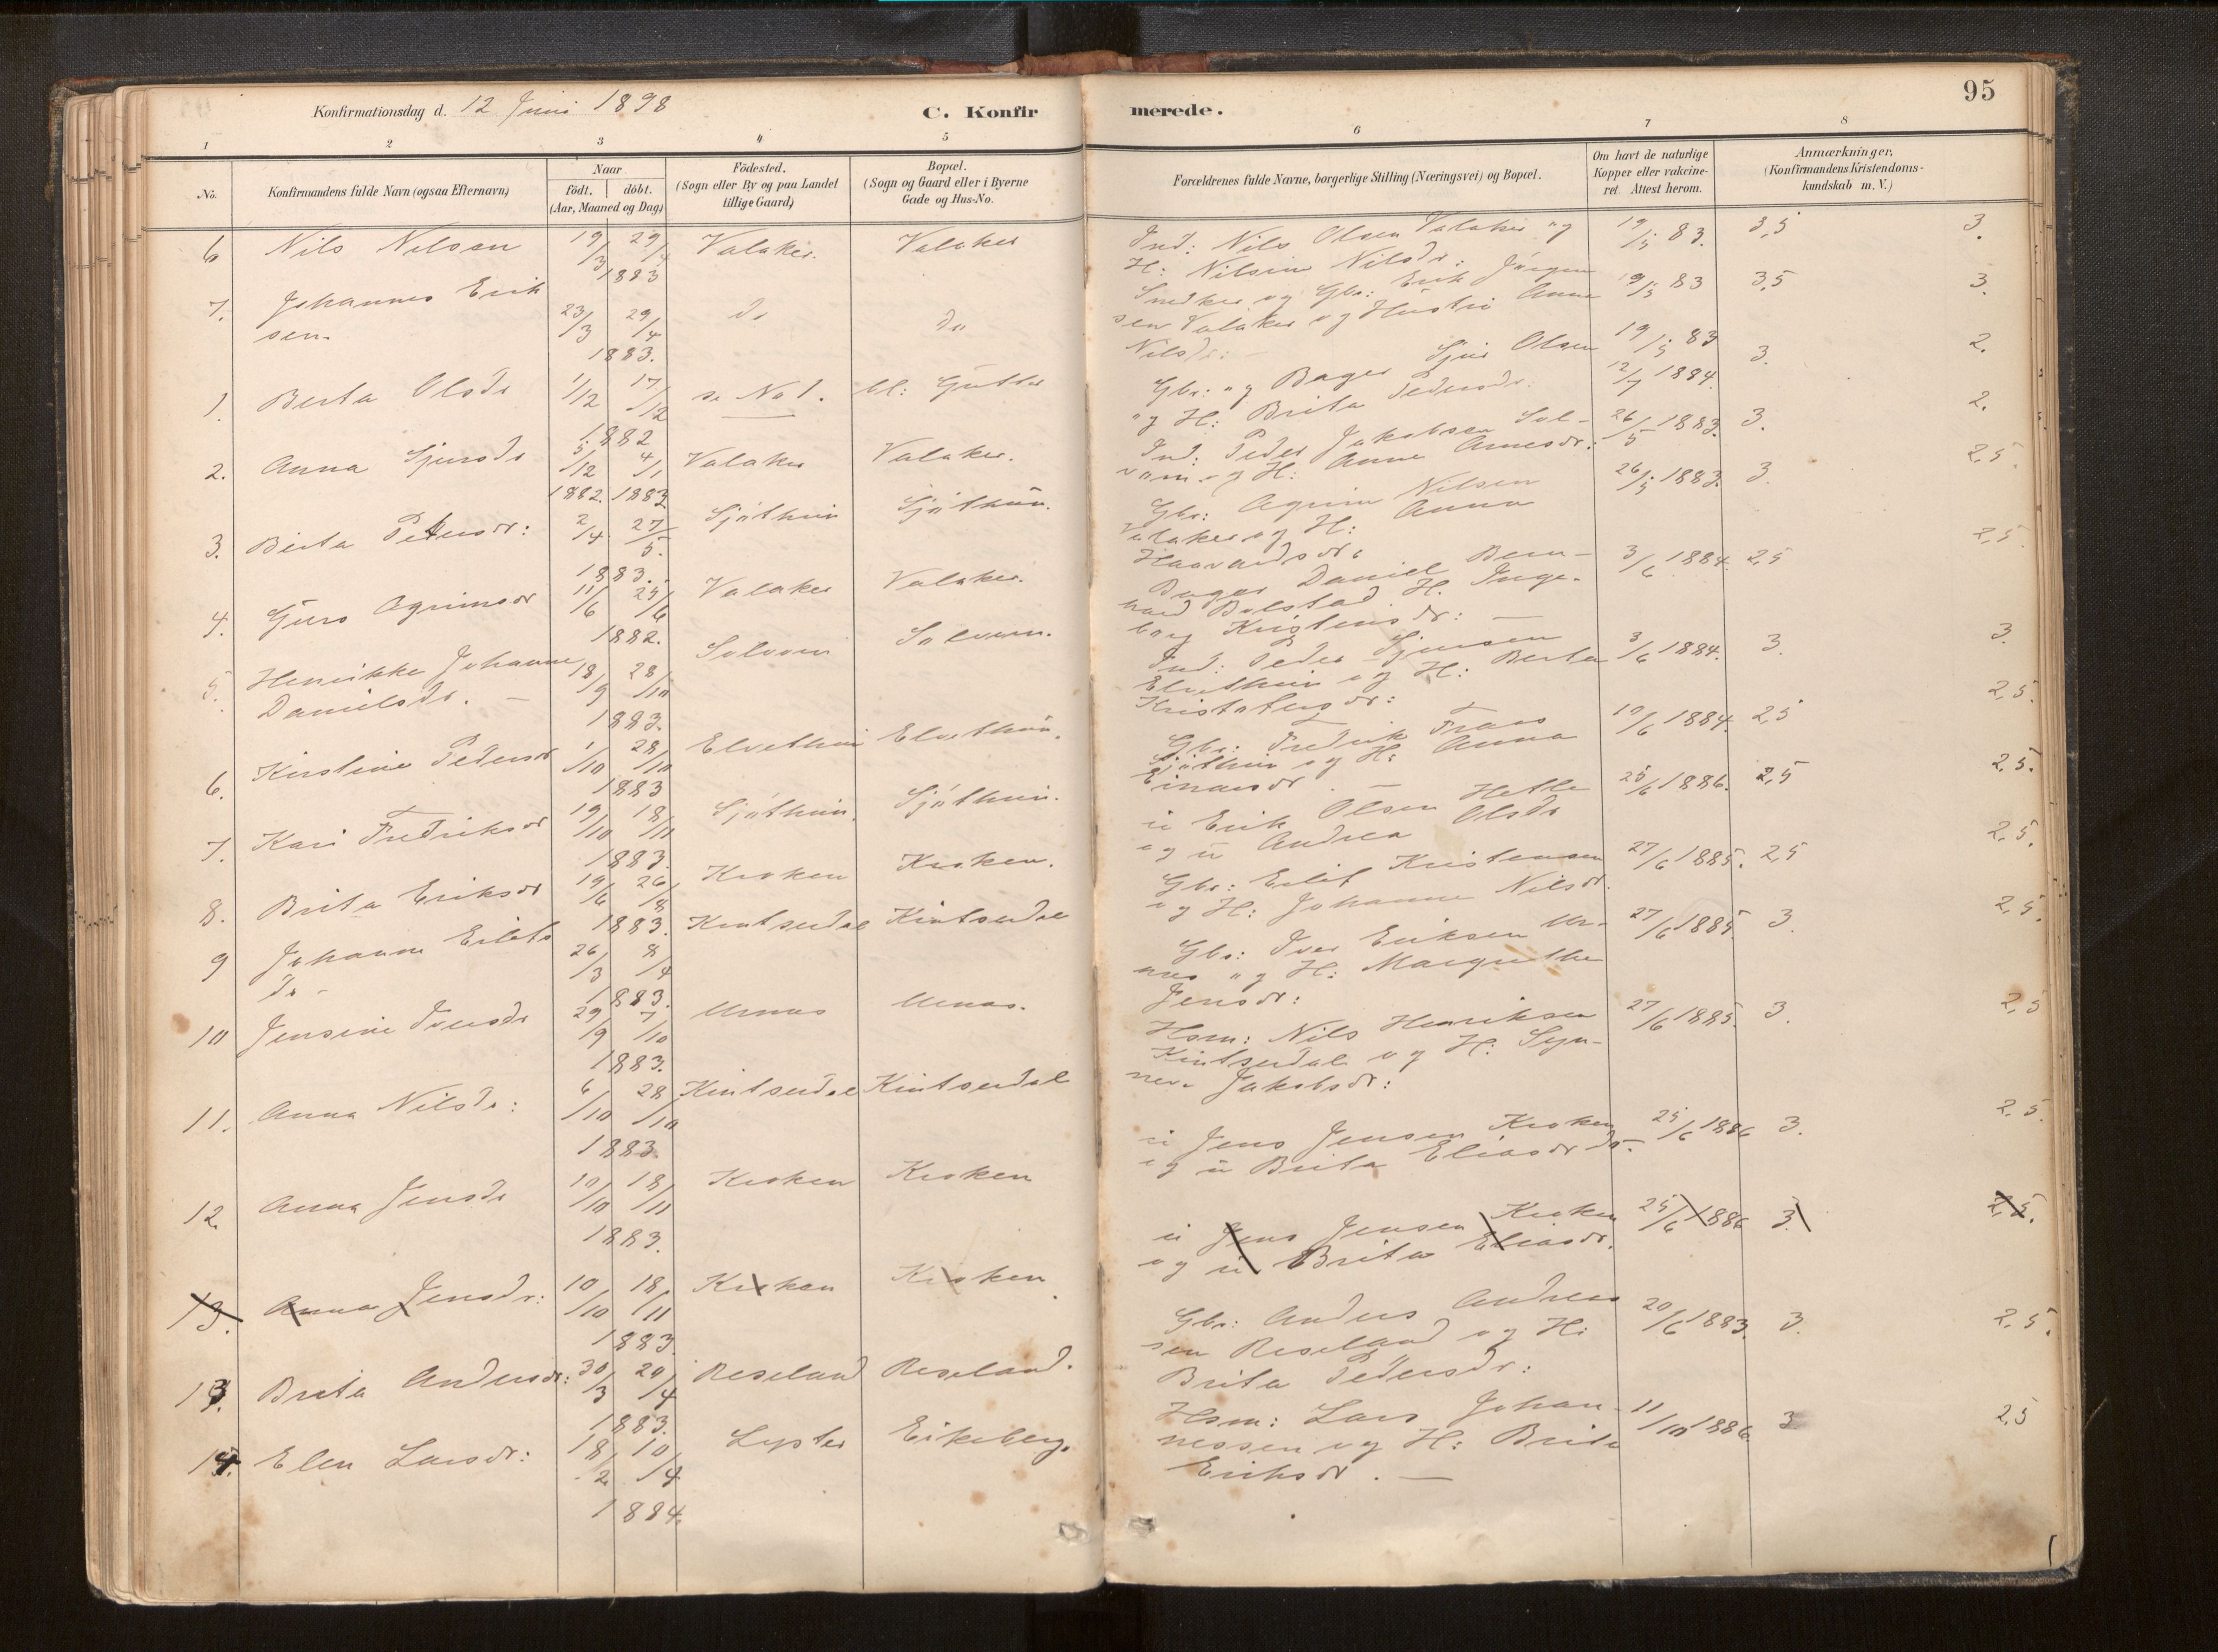 95
Konfirmationsdag d. 12 Juni 1898
C. Konfirmerede.
1 2 3 4 5 6 7 8
No.
Konfirmandens fulde Navn (ogsaa Efternavn)
Naar
födt. döbt.
(Aar, Maaned og Dag)
Födested.
(Sogn eller By og paa Landet
tillige Gaard)
Bopæl.
(Sogn og Gaard eller i Byerne
Gade og Hus-No.
Forældrenes fulde Navne, borgerlige Stilling (Næringsvei) og Bopæl.
Om havt de naturlige
Kopper eller vakcine-
ret. Attest herom.
Anmærkninger.
(Konfirmandens Kristendoms-
kundskab m. V.)
6 Nils Nilsen 19/3 29/4 1883 Valaker. Valaker
Ind: Nils Olsen Valaker og
H: Nilsine Nilsdr: 19/5 83. 3,5 3.
7. Johannes Erik
sen. 23/3 29/4 1883. do do
Snedker og Gbr: Erik Jörgen
sen Valaker og Hustru Anna
Nilsdr: 19/5 83 3,5 3.
1. Berta Olsdr 1/12 17/12 1882 se No 1. bl: Gutter
19/5 83 3. 2.
2. Anna Sjursdr 5/12 4/1 1882. 1883 Valaker Valaker.
Gbr: og Bager Sjur Olsen
og H: Brita Pedersdr. 12/7 1884. 3. 2.
3. Berta Petersdr: 2/4 27/5. 1883. Sjöthun Sjöthun.
Ind. Peder Jakobsen Sol-
vorn og H: Anne Arnesdr: 26/5 1883. 3. 2,5.
4. Guro Agrimsdr 11/6 25/6 1882. Valaker Valaker.
Gbr: Agrim Nilsen
Valaker og H: Anna
Haavardsdr: 26/5 1883. 3 2,5.
5. Henrikke Johanne
Danielsdr. 18/9 28/10 1883. Solvorn Solvorn.
Bager Daniel Bern-
hard Bolstad H. Inge-
borg Kristensdr: 3/6 1884. 2,5 3.
6. Kirstine Pedersdr 1/10 28/10 1883 Elvethun Elvethun.
Ind: Peder Sjursen
Elvethun og H: Berta
Kristofersdr: 3/6 1884. 3. 2,5.
7. Kari Fredriksdr 19/10 18/11 1883. Sjöthun. Sjöthun.
Gbr: Fredrik Frans
Sjöthun og H: Anna
Einarsdr. 10/6 1884. 2,5 2,5.
8. Brita Eriksdr 19/6 26/8 1883. Kroken Kroken.
u Erik Olsen Hetle
og u Andrea Olsdr 25/6 1886. 2,5 2,5.
9 Johanne Eilefs
dr 26/3 8/4 1883. Kintserdal Kintserdal
Gbr: Eilef Kristensen
og H: Johanne Nilsdr. 27/6 1885. 2,5 2,5.
10 Jensine Iversdr 29/9 7/10 1883. Urnes Urnes.
Gbr: Iver Eriksen Ur-
nes og H: Margrethe
Jensdr: 27/6 1885. 3. 2,5
11. Anna Nilsdr: 6/10 28/10 1883. Kintserdal Kintserdal
Hsm: Nils Henriksen
Kintserdal og H: Syn-
neve Jakobsdr: 27/6 1885. 3. 2,5.
12. Anna Jensdr 10/10 18/11 1883. Kroken Kroken
u Jens Jensen Kroken
og u Brita Eliasdr do. 25/6 1886 3.
13. Anna Jensdr: 10/10 18/11 1883. Kroken Kroken
u Jens Jensen Kroken
og u Brita Eliasdr. 25/6 1886 3. 2,5.
13. Brita Andersdr: 30/3 29/4 1883. Reseland Reseland.
Gbr: Anders Andrea
sen Reseland og H:
Brita Pedersdr: 20/6 1883. 3. 2,5.
14. Elen Larsdr: 18/2 10/4 1884. Lyster Eikeberg.
Hsm: Lars Johan-
nessen og H: Brita
Eriksdr. 11/10 1886. 3 2,5